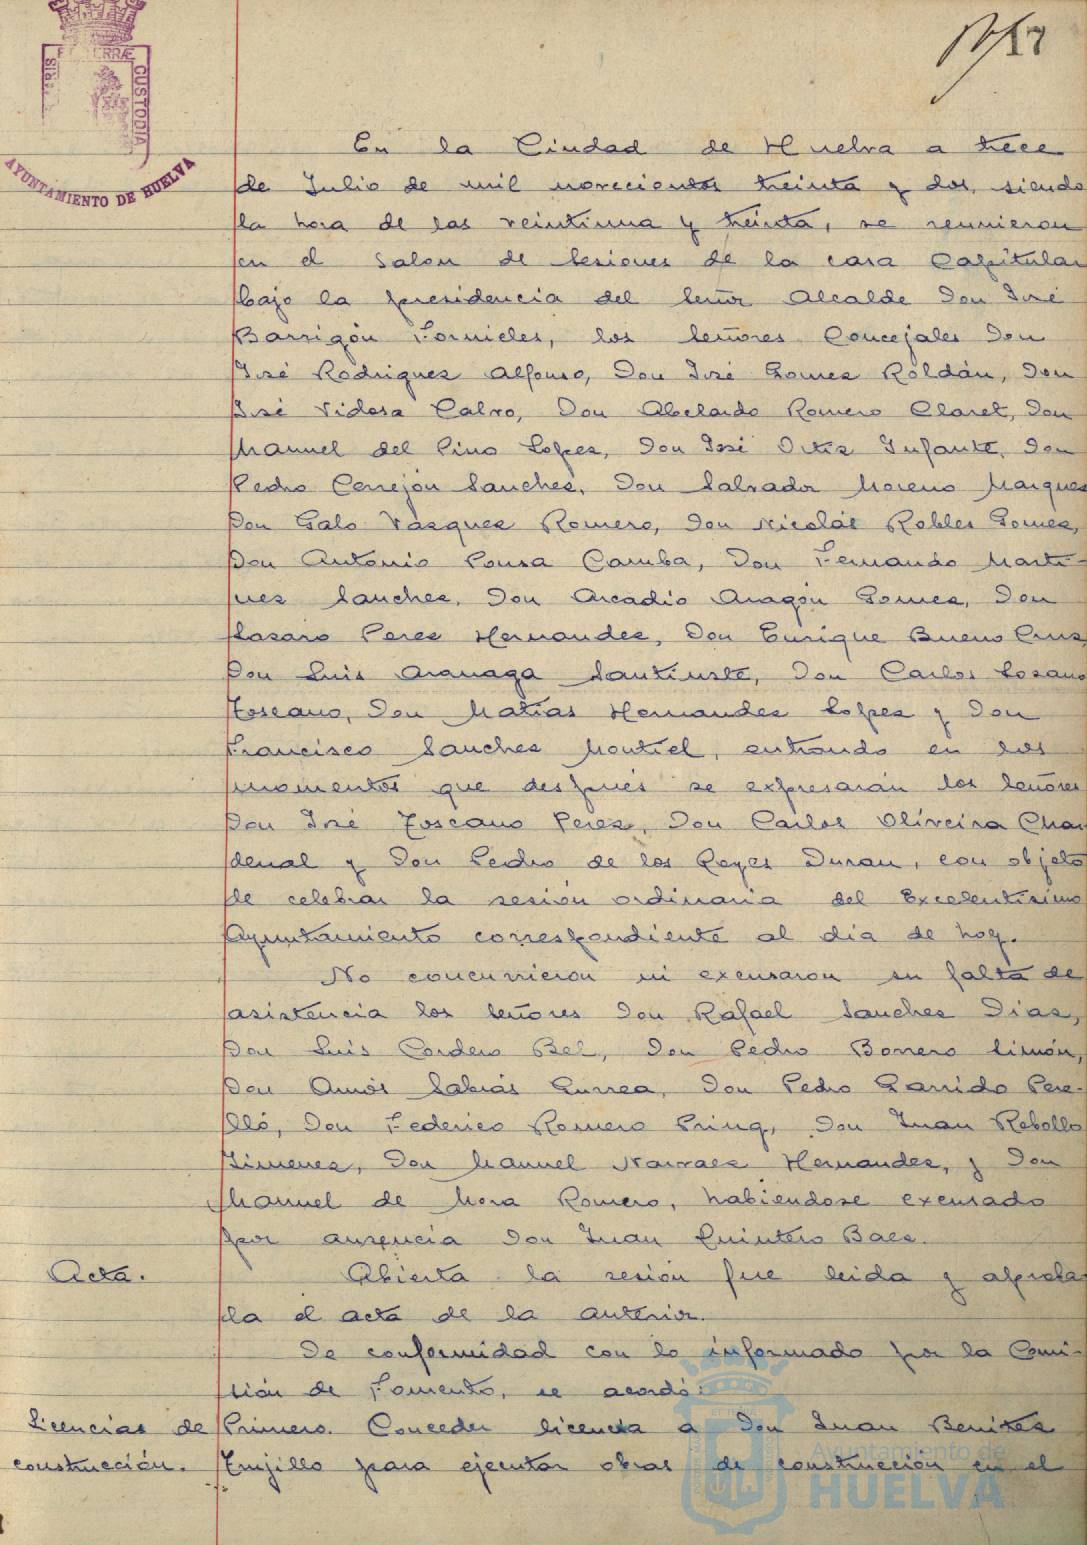 17
PORTUS MARIS ET TERRÆ CUSTODIA
AYUNTAMIENTO DE HUELVA
En la Ciudad de Huelva a trece
de Julio de mil novecientos treinta y dos, siendo
la hora de las veintiuna y treinta, se reunieron
en el Salon de Sesiones de la casa Capitular
bajo la presidencia del Señor Alcalde Don José
Barrigón Fornieles, los Señores Concejales Don
José Rodriguez Alfonso, Don José Gomez Roldán, Don
José Vidosa Calvo, Don Abelardo Romero Claret, Don
Manuel del Pino Lopez, Don José Ortiz Infante, Don
Pedro Cerrejón Sanchez, Don Salvador Moreno Marquez
Don Galo Vazquez Romero, Don Nicolás Robles Gomez,
Don Antonio Pousa Camba, Don Fernando Marti-
nez Sanchez, Don Arcadio Aragón Gomez, Don
Lazaro Perez Hernandez, Don Enrique Bueno Cruz,
Don Luis Aranaga Santiuste, Don Carlos Lozano
Toscano, Don Matías Hernandez Lopez y Don
Francisco Sanchez Montiel, entrando en los
momentos que después se expresarán los Señores
Don José Toscano Perez, Don Carlos Oliveira Char-
denal y Don Pedro de los Reyes Duran, con objeto
de celebrar la sesión ordinaria del Excelentísimo
Ayuntamiento correspondiente al dia de hoy.
No concurrieron ni excusaron su falta de
asistencia los Señores Don Rafael Sanchez Diaz,
Don Luis Cordero Bel, Don Pedro Borrero Limón,
Don Amós Sabrás Gurrea, Don Pedro Garrido Pere-
lló, Don Federico Romero Pring, Don Juan Rebollo
Jimenez, Don Manuel Narvaez Hernandez, y Don
Manuel de Mora Romero, habiendose excusado
por ausencia Don Juan Quintero Baez.
Acta.
Abierta la sesión fue leida y aproba-
da el acta de la anterior.
De conformidad con lo informado por la Comi-
sión de Fomento, se acordó:
Licencias de construcción.
Primero. Conceder licencia a Don Juan Benitez
Trujillo para ejecutar obras de construcción en el
Ayuntamiento de
HUELVA